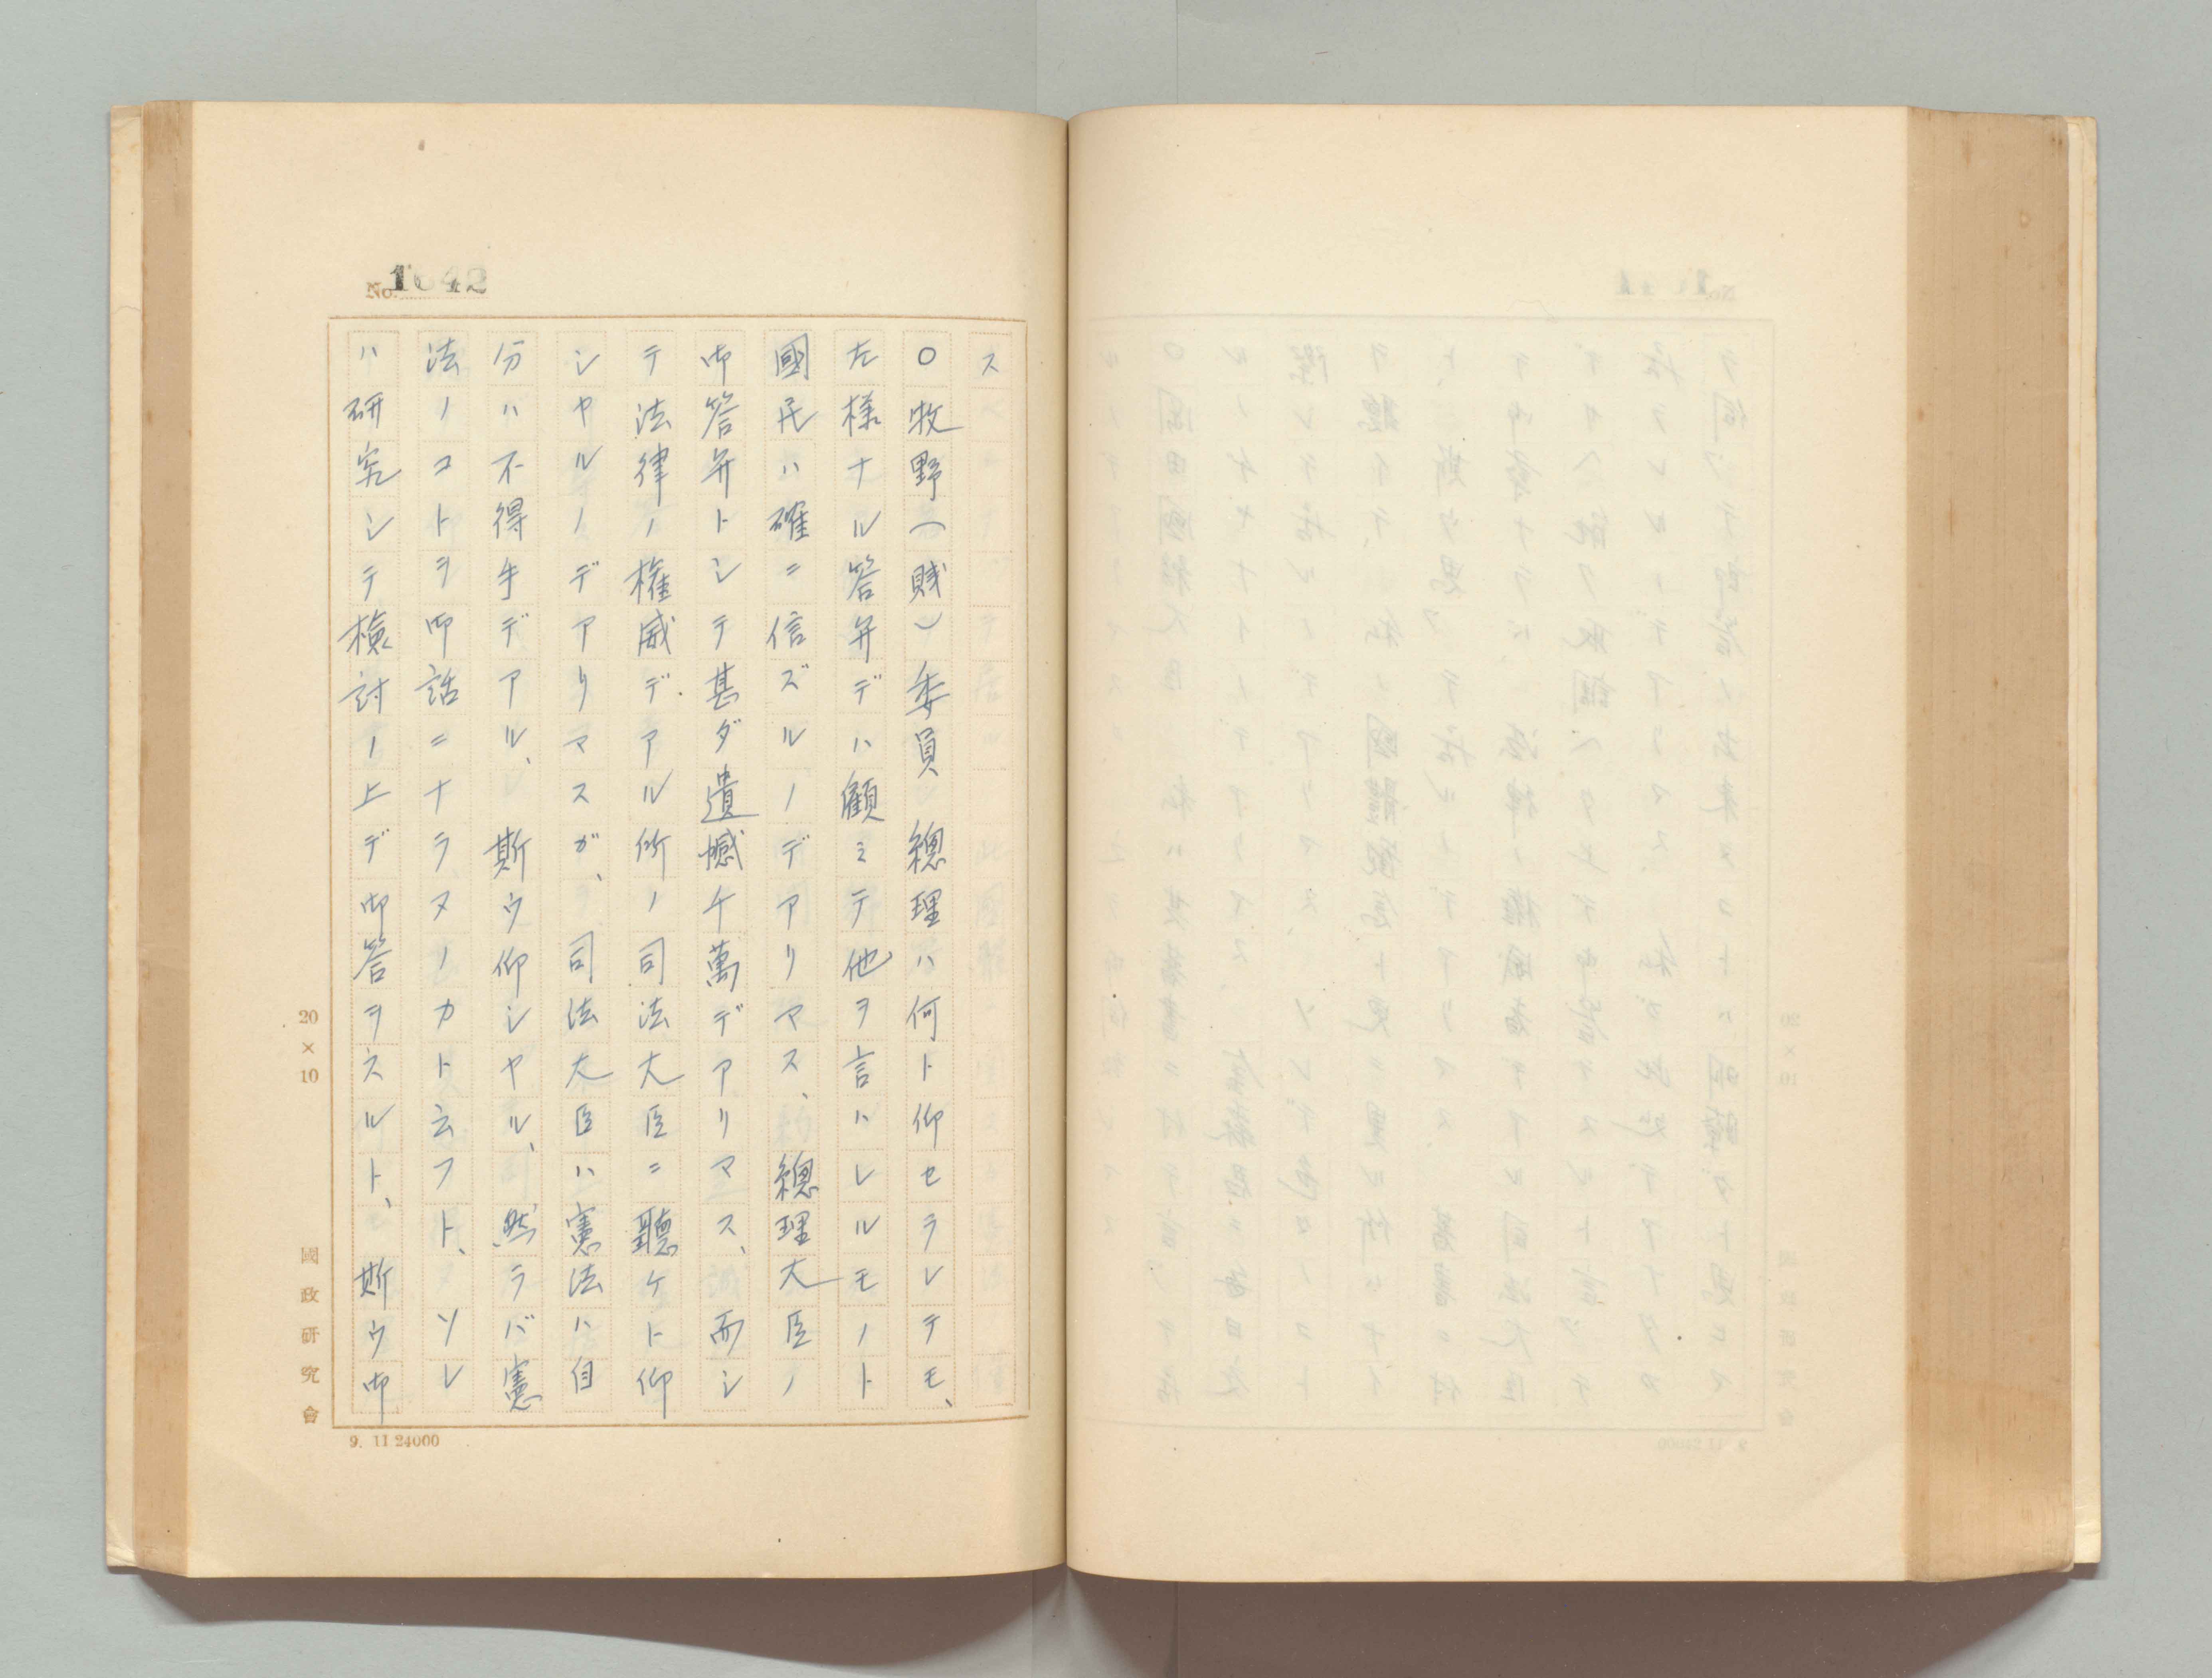 No. 1642
ス
〇牧野(賤)委員 總理ハ何ト仰セラレテモ、
左様ナル答弁デハ顧ミテ他ヲ言ハレルモノト
國民ハ確ニ信ズルノデアリマス、總理大臣ノ
御答弁トシテ甚ダ遺憾千萬デアリマス、而シ
テ法律ノ権威デアル所ノ司法大臣ニ聽ケト仰
シャルノデアリマスガ、司法大臣ハ憲法ハ自
分ハ不得手デアル、斯ウ仰シャル、然ラバ憲
法ノコトヲ御話ニナラヌノカト云フト、ソレ
ハ研究シテ檢討ノ上デ御答ヲスルト、斯ウ御
20×10
國政研究會
9. 11 24000